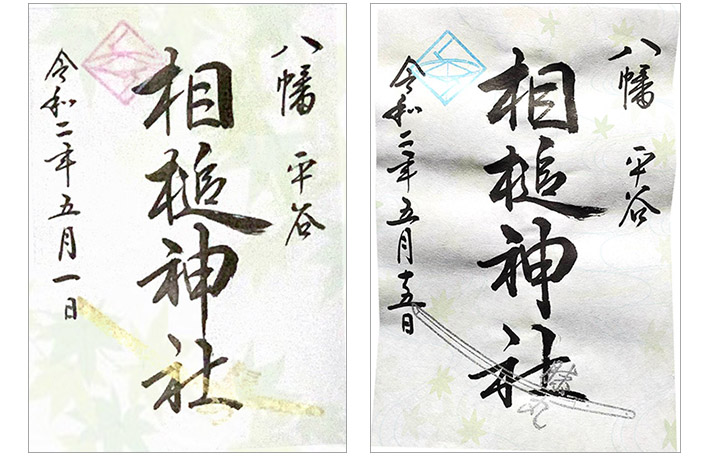 八幡 平谷
相槌神社
令和二年五月一日
八幡 平谷
相槌神社
令和二年五月十五日